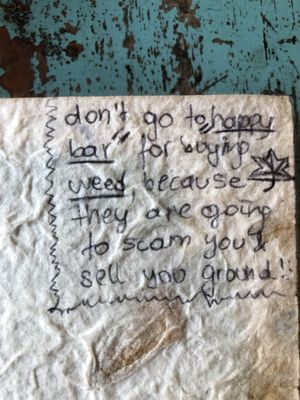 don't go to "happy
bar" for buying
weed, because
they are going
to scam you &
sell you ground!!